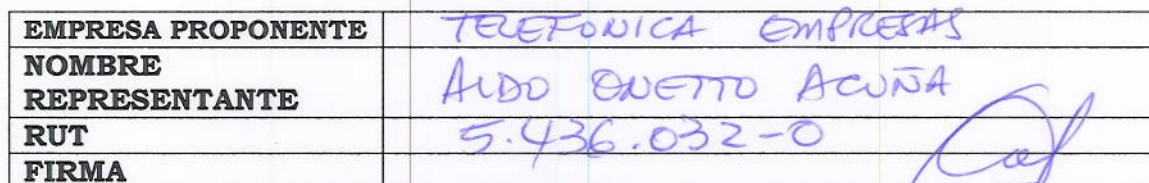 EMPRESA PROPONENTE TELEFONICA EMPRESAS
NOMBRE
REPRESENTANTE ALDO ONETTO ACUÑA
RUT 5.436.032-0
FIRMA